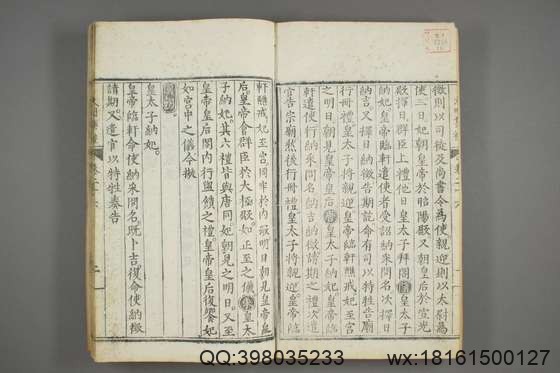 徵則以司徒及尚書令為使親迎則以太尉為
使三日妃朝皇帝於昭陽殿又朝皇后於宣光
殿擇日群臣上禮他日皇太子拜閤皇太子
納妃皇帝臨軒遣使者受詔納采問名次擇日
納吉又擇日納徵告期訖命有司以特牲告廟
行冊禮皇太子將親迎皇帝臨軒醮戒妃至宮
之明日朝見皇帝皇后皇太子納妃皇帝臨
軒遣使行納采問名納吉納徵請期之禮次遣
官告宗廟然後行冊禮皇太子將親迎皇帝臨
軒醮戒妃至宮同牢於内殿明日朝見皇帝皇
后皇帝會群臣於大極殿如正至之儀皇太
子納妃其六禮皆與唐同妃朝見之明日又至
皇帝皇后閤内行盥饋之禮皇帝皇后復饗妃
如宮中之儀今擬
皇太子納妃
皇帝臨軒命使納采問名既卜吉復命使納徵
請期又遣官以特牲奏告
QQ:398035233
wx:18161500127